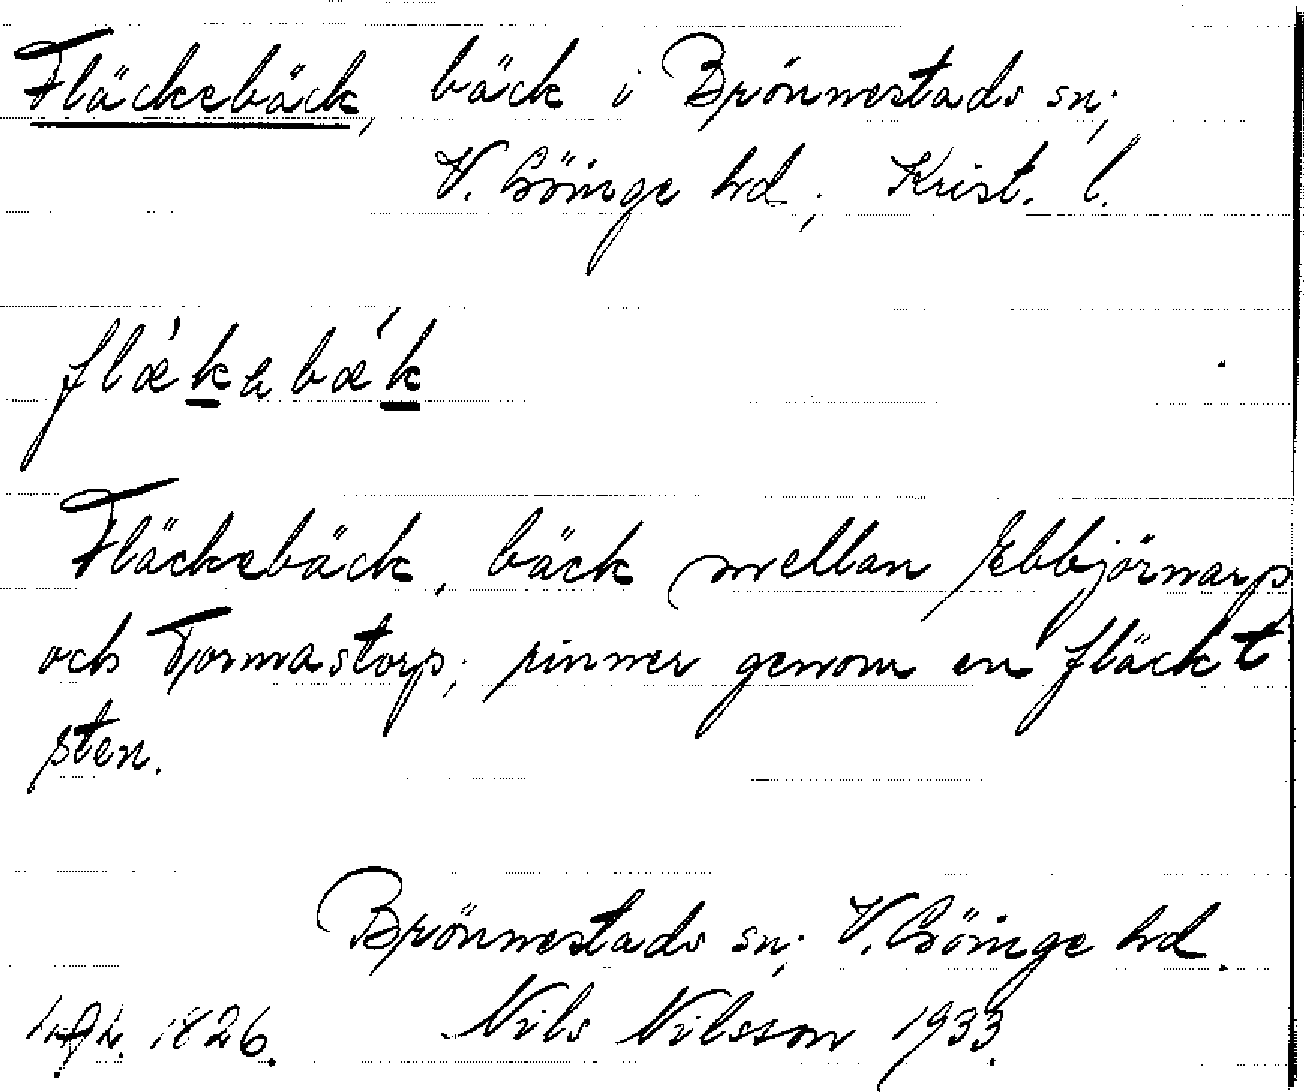 Fläckebäck, bäck i Brönnestads sn;
V. Göinge hd; Krist. l.
flæ̀kəbǽk
Fläckebäck, bäck mellan Ebbjörnarp
och Tormastorp; rinner genom en fläckt
sten.
Brönnestads sn; V. Göinge hd.
1826. Nils Nilsson 1933.